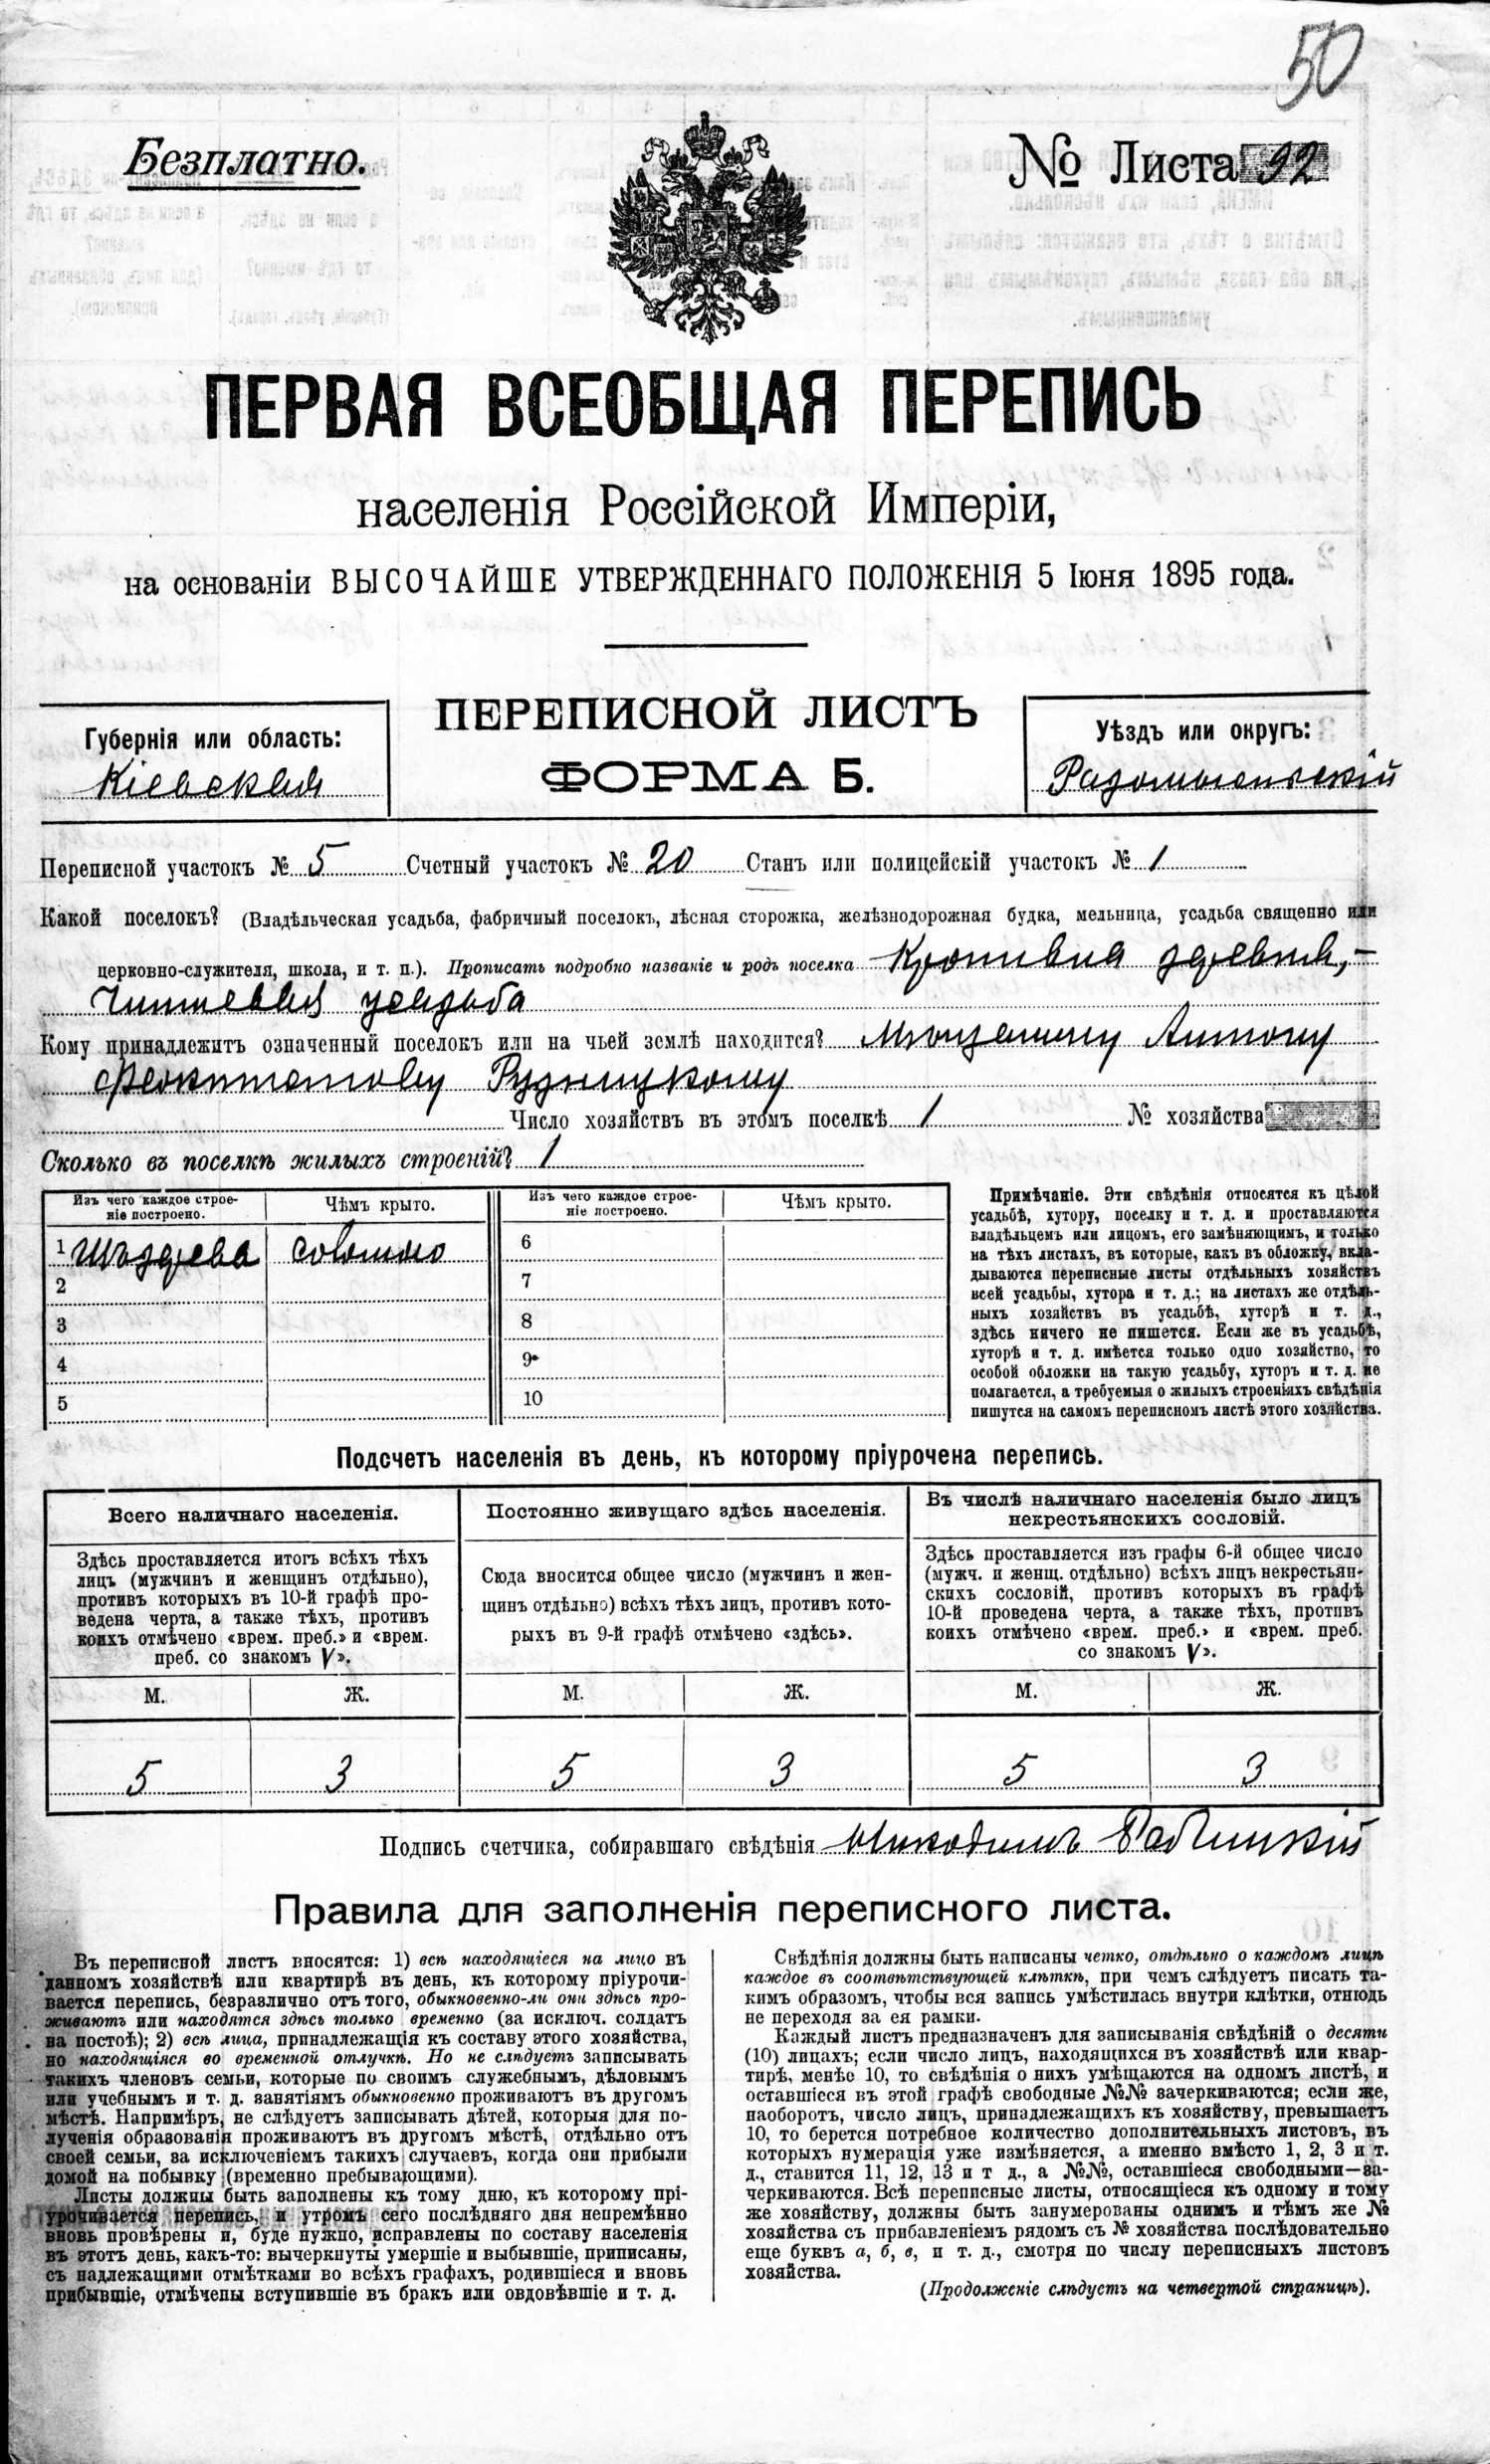 50
Безплатно.
№ Листа 92
ПЕРВАЯ ВСЕОБЩАЯ ПЕРЕПИСЬ
населенія Россійской Имперіи,
на основаніи ВЫСОЧАЙШЕ УТВЕРЖДЕННАГО ПОЛОЖЕНІЯ 5 Іюня 1895 года.
ПЕРЕПИСНОЙ ЛИСТЪ
ФОРМА Б.
Губернія или область:
Кіевская
Уѣздъ или округъ:
Радомысльскій
Переписной участокъ № 5 Счетный участокъ № 20 Станъ или полицейскій участокъ № 1
Какой поселокъ? (Владѣльческая усадьба, фабричный поселокъ, лѣсная сторожка, желѣзнодорожная будка, мельница, усадьба священно или
церковно-служителя, школа, и т. п.). Прописать подробно названіе и родъ поселка Кропивня
усадьба
Кому принадлежитъ означенный поселокъ или на чьей землѣ находится? Мѣщанину Антону
Феоктистову Рудницкому
Число хозяйствъ въ этомъ поселкѣ 1 № хозяйства
Сколько въ поселкѣ жилыхъ строеній? 1
Изъ чего каждое строе-
ніе построено.
Чѣмъ крыто.
Изъ чего каждое строе-
ніе построено.
Чѣмъ крыто.
1 Изъ дерева соломою
2
3
4
5
6
7
8
9
10
Примѣчаніе. Эти свѣдѣнія относятся къ цѣлой
усадьбѣ, хутору, поселку и т. д. и проставляются
владѣльцемъ или лицомъ, его замѣняющимъ, и только
на тѣхъ листахъ, въ которые, какъ въ обложку, вкла-
дываются переписные листы отдѣльныхъ хозяйствъ
всей усадьбы, хутора и т. д.; на листахъ же отдѣль-
ныхъ хозяйствъ въ усадьбѣ, хуторѣ и т. д.,
здѣсь ничего не пишется. Если же въ усадьбѣ,
хуторѣ и т. д. имѣется только одно хозяйство, то
особой обложки на такую усадьбу, хуторъ и т. д. не
полагается, а требуемыя о жилыхъ строеніяхъ свѣдѣнія
пишутся на самомъ переписномъ листѣ этого хозяйства.
Подсчетъ населенія въ день, къ которому пріурочена перепись.
Всего наличнаго населенія.
Здѣсь проставляется итогъ всѣхъ тѣхъ
лицъ (мужчинъ и женщинъ отдѣльно),
противъ которыхъ въ 10-й графѣ про-
ведена черта, а также тѣхъ, противъ
коихъ отмѣчено «врем. преб.» и «врем.
преб. со знакомъ V».
Постоянно живущаго здѣсь населенія.
Сюда вносится общее число (мужчинъ и жен-
щинъ отдѣльно) всѣхъ тѣхъ лицъ, противъ кото-
рыхъ въ 9-й графѣ отмѣчено «здѣсь».
Въ числѣ наличнаго населенія было лицъ
некрестьянскихъ сословій.
Здѣсь проставляется изъ графы 6-й общее число
(мужч. и женщ. отдѣльно) всѣхъ лицъ некрестьян-
скихъ сословій, противъ которыхъ въ графѣ
10-й проведена черта, а также тѣхъ, противъ
коихъ отмѣчено «врем. преб.» и «врем. преб.
со знакомъ V».
М. Ж. М. Ж. М. Ж.
5 3 5 3 5 3
Подпись счетчика, собиравшаго свѣдѣнія Никодимъ
Правила для заполненія переписного листа.
Въ переписной листъ вносятся: 1) всѣ находящіеся на лицо въ
данномъ хозяйствѣ или квартирѣ въ день, къ которому пріурочи-
вается перепись, безразлично отъ того, обыкновенно-ли они здѣсь про-
живаютъ или находятся здѣсь только временно (за исключ. солдатъ
на постоѣ); 2) всѣ лица, принадлежащія къ составу этого хозяйства,
но находящіяся во временной отлучкѣ. Но не слѣдуетъ записывать
такихъ членовъ семьи, которые по своимъ служебнымъ, дѣловымъ
или учебнымъ и т. д. занятіямъ обыкновенно проживаютъ въ другомъ
мѣстѣ. Напримѣръ, не слѣдуетъ записывать дѣтей, которыя для по-
лученія образованія проживаютъ въ другомъ мѣстѣ, отдѣльно отъ
своей семьи, за исключеніемъ такихъ случаевъ, когда они прибыли
домой на побывку (временно пребывающими).
Листы должны быть заполнены къ тому дню, къ которому прі-
урочивается перепись, и утромъ сего послѣдняго дня непремѣнно
вновь провѣрены и, буде нужно, исправлены по составу населенія
въ этотъ день, какъ-то: вычеркнуты умершіе и выбывшіе, приписаны,
съ надлежащими отмѣтками во всѣхъ графахъ, родившіеся и вновь
прибывшіе, отмѣчены вступившіе въ бракъ или овдовѣвшіе и т. д.
Свѣдѣнія должны быть написаны четко, отдѣльно о каждомъ лицѣ
каждое въ соотвѣтствующей клѣткѣ, при чемъ слѣдуетъ писать та-
кимъ образомъ, чтобы вся запись умѣстилась внутри клѣтки, отнюдь
не переходя за ея рамки.
Каждый листъ предназначенъ для записыванія свѣдѣній о десяти
(10) лицахъ; если число лицъ, находящихся въ хозяйствѣ или квар-
тирѣ, менѣе 10, то свѣдѣнія о нихъ умѣщаются на одномъ листѣ, и
оставшіеся въ этой графѣ свободные №№ зачеркиваются; если же,
наоборотъ, число лицъ, принадлежащихъ къ хозяйству, превышаетъ
10, то берется потребное количество дополнительныхъ листовъ, въ
которыхъ нумерація уже измѣняется, а именно вмѣсто 1, 2, 3 и т.
д., ставится 11, 12, 13 и т д., а №№, оставшіеся свободными—за-
черкиваются. Всѣ переписные листы, относящіеся къ одному и тому
же хозяйству, должны быть занумерованы однимъ и тѣмъ же №
хозяйства съ прибавленіемъ рядомъ съ № хозяйства послѣдовательно
еще буквъ а, б, в, и т. д., смотря по числу переписныхъ листовъ
хозяйства.
(Продолженіе слѣдуетъ на четвертой страницѣ).